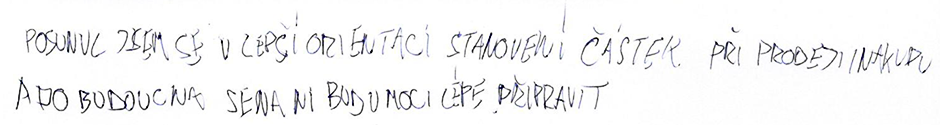 POSUNUL JSEM SE V LEPŠÍ ORIENTACI STANOVENÍ ČÁSTEK PŘI PRODEJI I NÁKUPU
A DO BUDOUCNA SE NA NI BUDU MOCI LÉPE PŘIPRAVIT